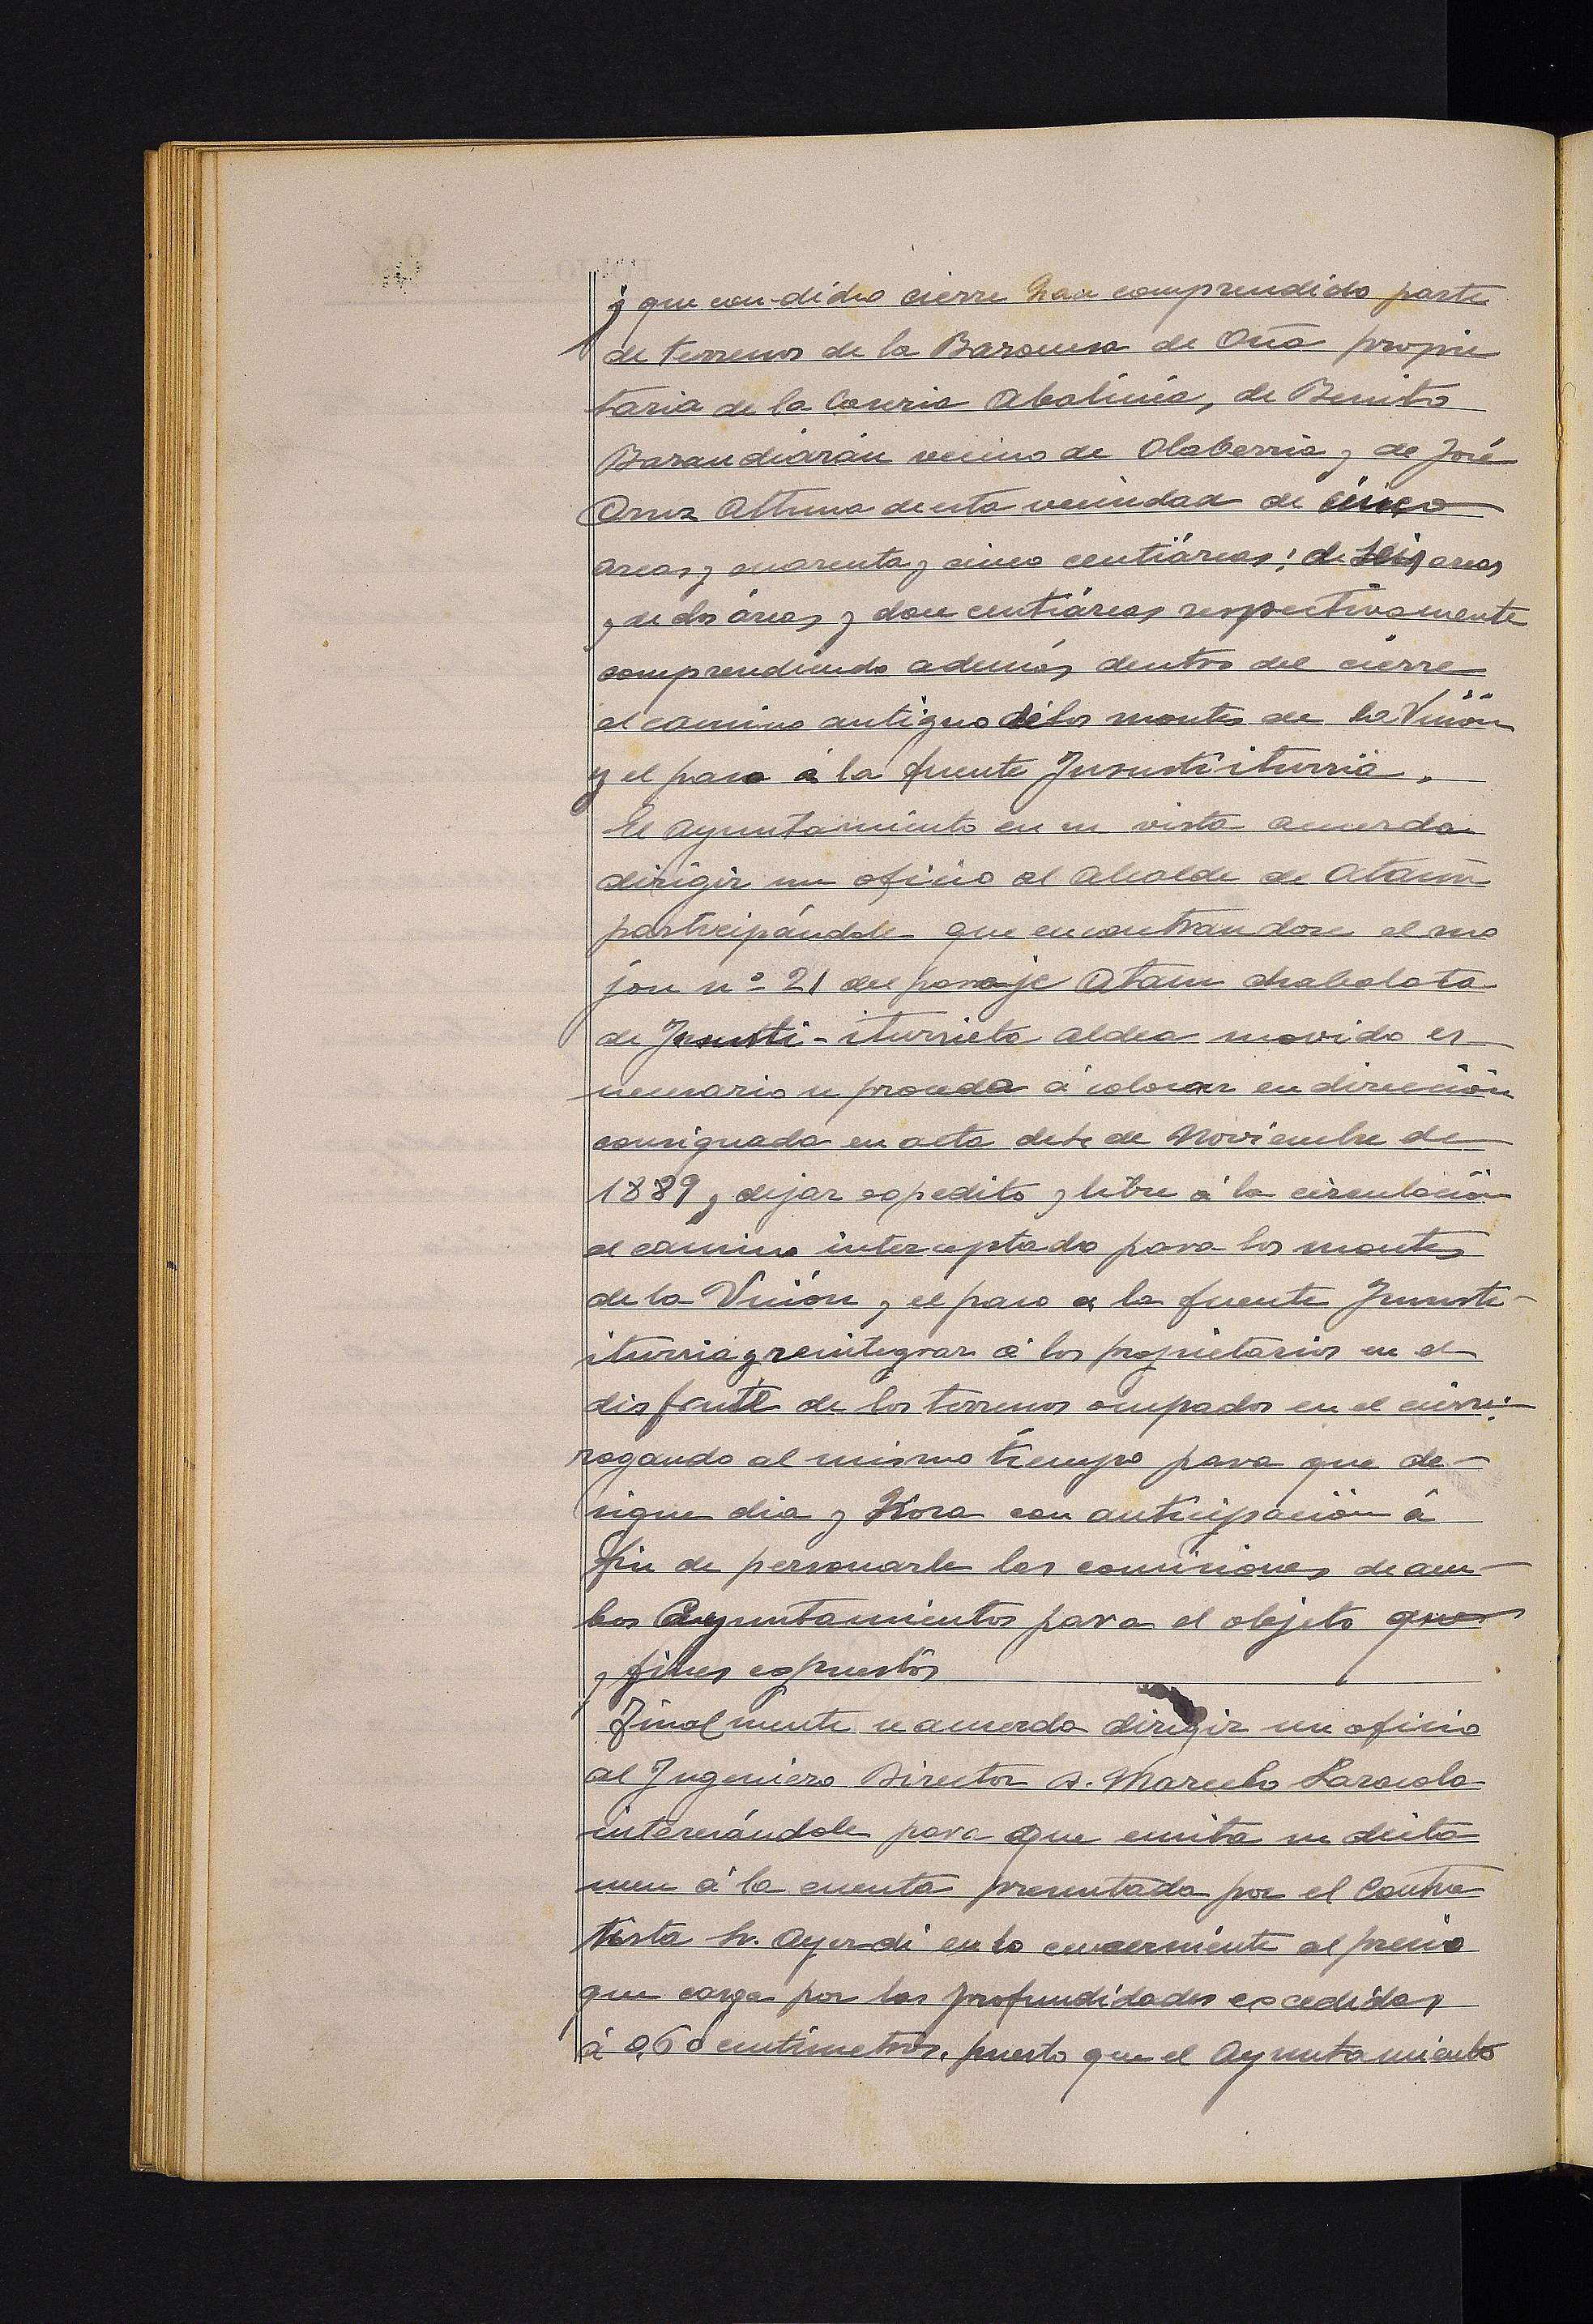 y que con dicho cierre han comprendido parte
de terrenos de la Baronesa de Oña propie
taria de la Caseria Abalinéa, de Benito
Barandiarán vecino de Olaberria y de José
Cruz Altuna de esta vecindad de cinco
areas y cuarenta y cinco centiáreas; de seis areas
y de dos áreas y doce centiáreas respectivamente
comprendiendo además dentro del cierre
el camino antiguo de los montes de la Unión
y el paso á la fuente Jusustiiturria.
El Ayuntamiento en su vista acuerda
dirigir un oficio al Alcalde de Ataun
participándole que encontrandose el mo
jon nº 21 del paraje Ataun chabolata
de Jususti-iturrieta aldea movido es
necesario se proceda á colocar en dirección
consignada en acta de 4 de Noviembre de
1889 y dejar expedito y libre á la circulación
el camino interceptado para los montes
de la Unión y el paso a la fuente Jususte-
iturria y reintegrar á los propietarios en el
disfrute de los terrenos ocupados en el cierre:
rogando al mismo tiempo para que de-
signe dia y Hora con anticipación á
fin de personarle las comisiones de am-
bos Ayuntamientos para el objeto que
y fines expuestos
Finalmente se acuerda dirigir un oficio
al Ingeniero Director D. Marcelo Sarasola
interesándole para que emita su dicta
men á la cuenta presentada por el Contra
tista Sr. Ayerdi en lo concerniente al precio
que carga por las profundidades excedidas
á 0,60 centímetros, puesto que el Ayuntamiento